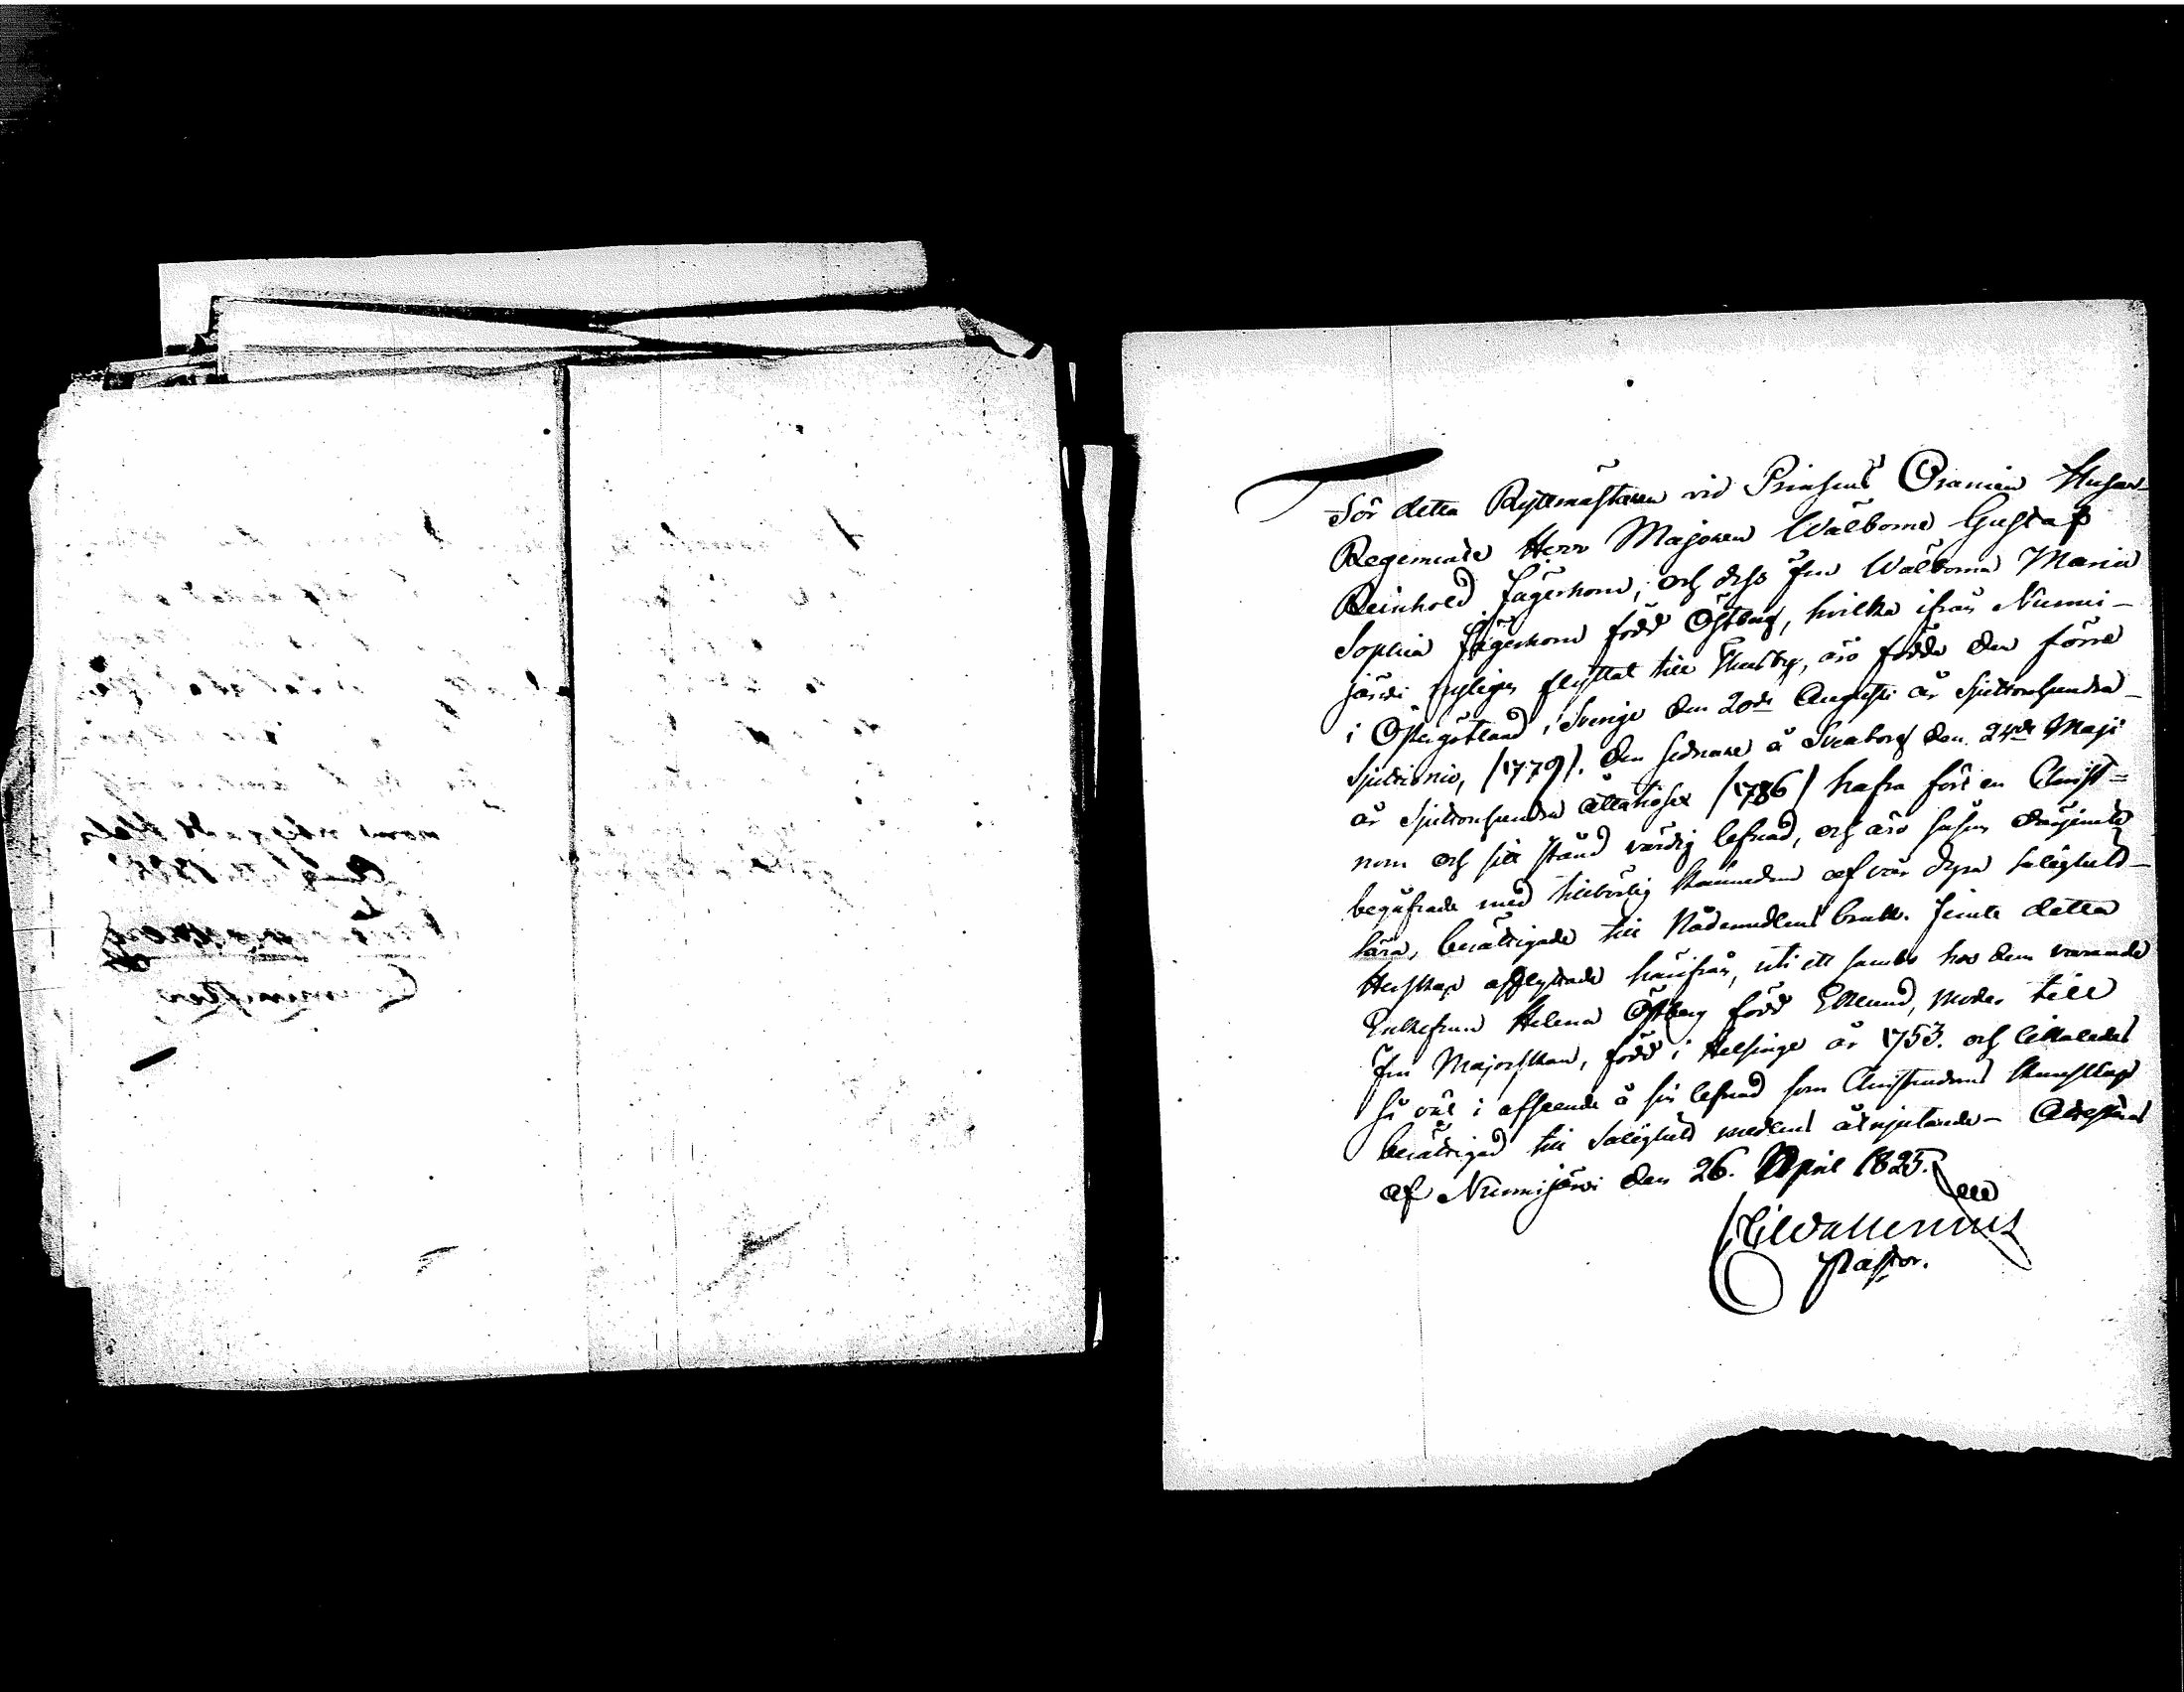 För detta Ryttmästaren vid Prinsens Oranien Husar-
Regemente Herr Majoren Wälborne Gustaf
Reinhold Jägerhorn, och dess Fru Wälborna Maria
Sophia Jägerhorn född Östberg, hvilka ifrån Nurmi-
järvi nyligen flyttat till Thusby, äro födde den förre
i Östergötland i Sverige den 20de Augusti år Sjuttonhundra-
Sjuttionio, (1779). den sednare å Sveaborg den 24de Maji
år Sjuttonhundra åttatiosex (1786) hafva fört en Christ=
nom och sitt stånd värdig lefnad, och äro
begåfvade med tillbörlig kännedom af vår dyra Salighets-
lära, berättigade till Nådemedlens bruk. Jemte detta
Herrskap afflyttade härifrån, uti ett samlo hos dem varande
Enkefrun Helena Östberg född Eklund, moder till
Fru Majorskan, född i Helsinge år 1753. och likaledes
så väl i afseende å sin lefnad som Christendoms kunskap
berättigad till Salighets medlens åtnjutande – Attesteras
af Nurmijärvi den 26. April 1825.
Pastor.